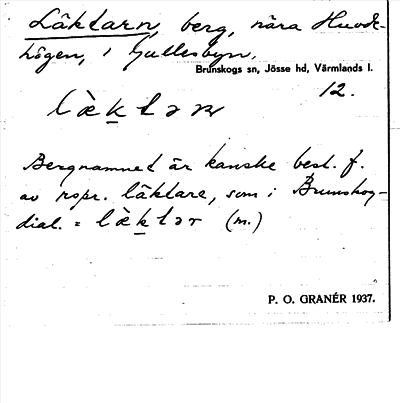 Läktarn, berg, nära Huvdt-
högen, i Gullesbyn.
Brunskogs sn, Jösse hd, Värmlands l.
12.
lὰk̲tər
Bergnamnet är kanske best. f.
av rspr. läktare, som i Brunskog-
dial. = lὰk̲tər (m.)
P. O. GRANÉR 1937.